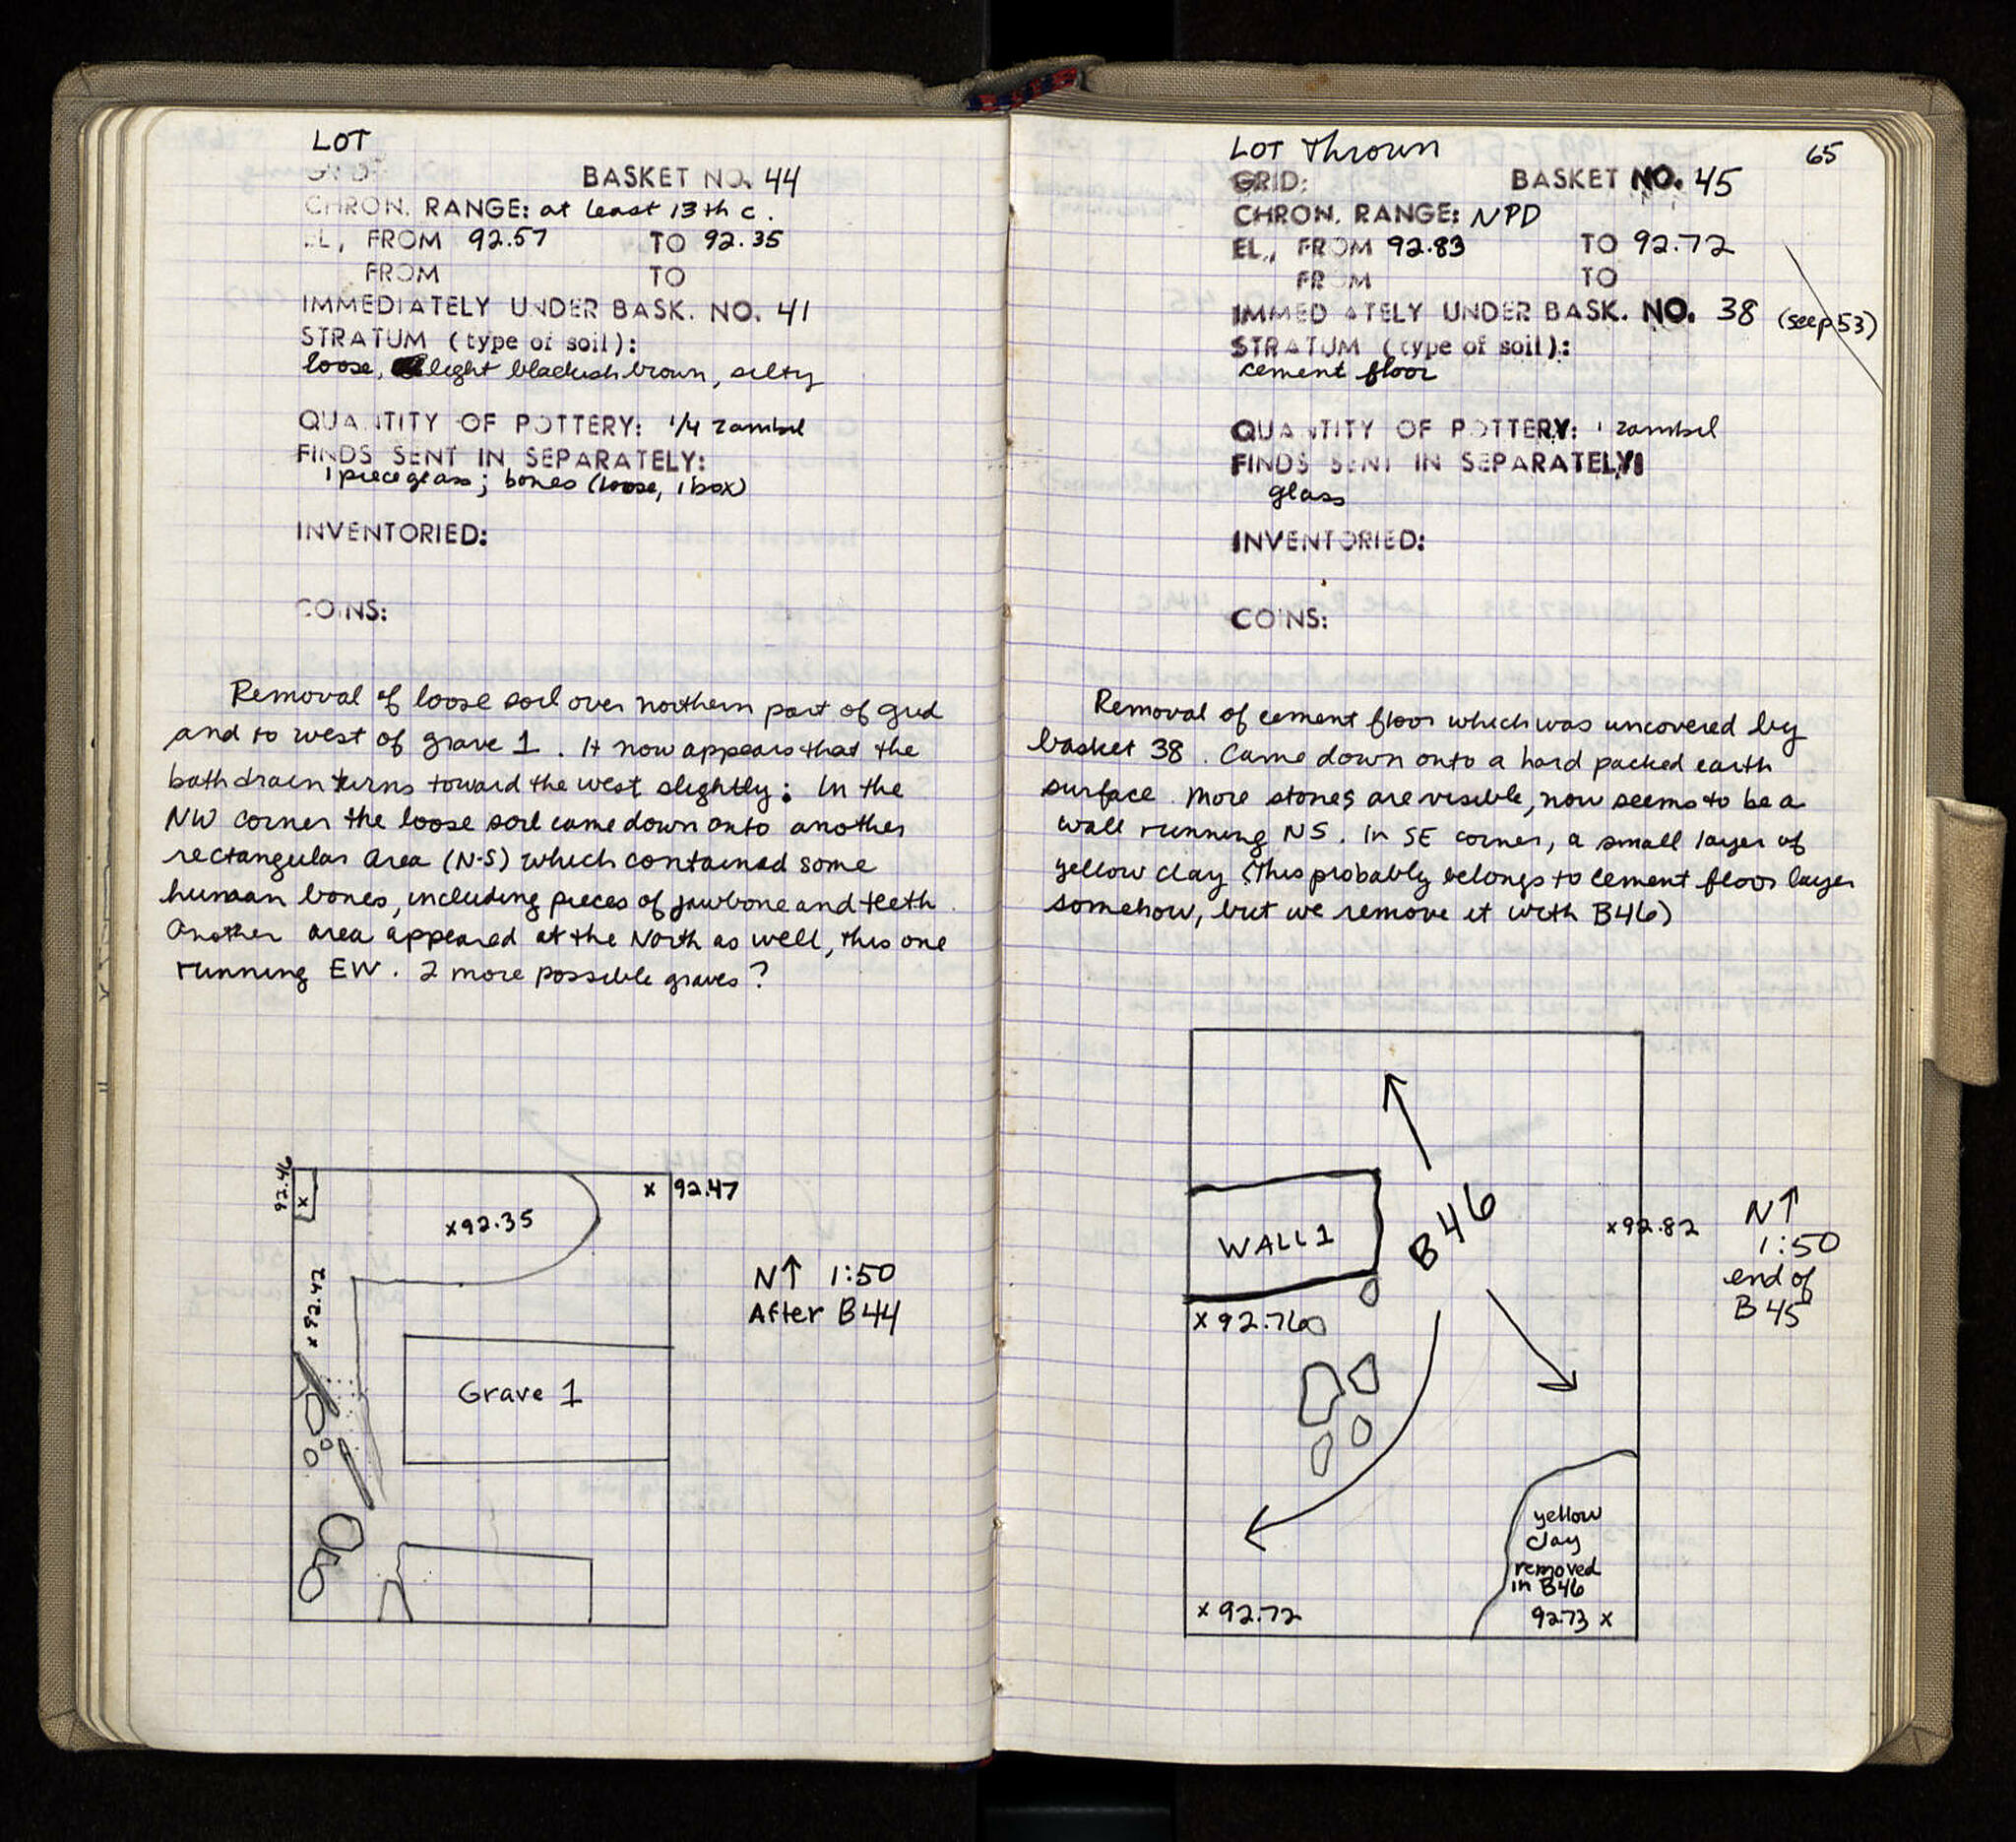 LOT
GRID:
BASKET NO. 44
CHRON. RANGE: at least 13th c.
EL., FROM 92.57 TO 92.35
FROM TO
IMMEDIATELY UNDER BASK. NO. 41
STRATUM (type of soil):
loose, light blackish brown, silty
QUANTITY OF POTTERY: 1/4 zambil
FINDS SENT IN SEPARATELY:
1 piece glass; bones (loose, 1 box)
INVENTORIED:
COINS:
Removal of loose soil over northern part of grid
and to west of grave 1. It now appears that the
bath drain turns toward the west slightly; In the
NW corner the loose soil came down onto another
rectangular area (N-S) which contained some
human bones, including pieces of jawbone and teeth.
Another area appeared at the North as well, this one
running EW. 2 more possible graves?
92.46
x
x 92.35
x 92.47
x 92.42
N↑ 1:50
After B44
Grave 1
65
LOT Thrown
GRID:
BASKET NO. 45
CHRON. RANGE: NPD
EL., FROM 92.83 TO 92.72
FROM TO
IMMEDIATELY UNDER BASK. NO. 38 (see p 53)
STRATUM (type of soil):
cement floor
QUANTITY OF POTTERY: 1 zambil
FINDS SENT IN SEPARATELY:
glass
INVENTORIED:
COINS:
Removal of cement floor which was uncovered by
basket 38. Came down onto a hard packed earth
surface. More stones are visible, now seems to be a
wall running NS. In SE corner, a small layer of
yellow clay (This probably belongs to cement floor layer
somehow, but we remove it with B46)
WALL 1
B46
x 92.82
x 92.76
N↑
1:50
end of
B45
yellow
clay
removed
in B46
92.73 x
x 92.72